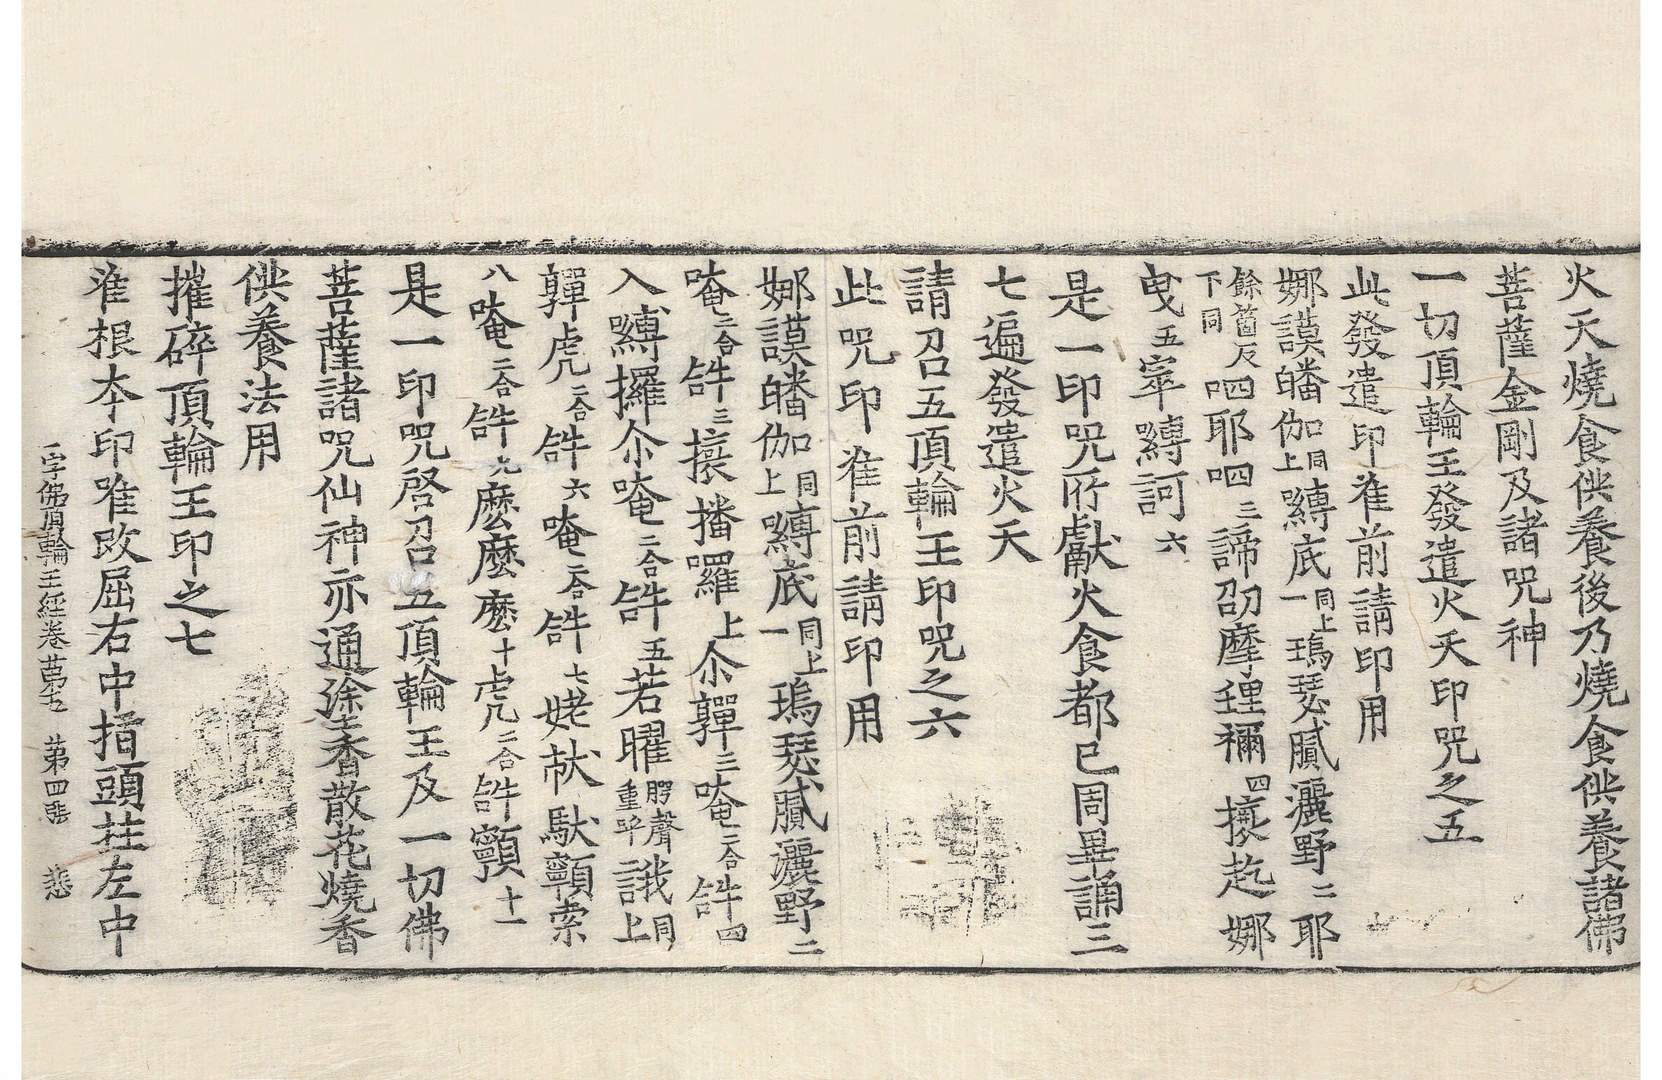 火天燒食供養後乃燒食供養諸佛
菩薩金剛及諸呪神
一切頂輪王發遣火天印呪之五
此發遣印准前請印用
娜謨皤伽同上嚩底一同上瑦瑟膩灑野二耶
餘箇反下同呬耶呬三諦邵摩狸禰四攘訖娜
曳五窣嚩訶六
是一印呪所獻火食都已周畢誦三
七遍發遣火天
請召五頂輪王印呪之六
此呪印准前請印用
娜謨皤伽同上嚩底一同上瑦瑟膩灑野二
唵二合𤙖三攘播囉上尒亸三唵二合𤙖四
入嚩攞尒唵二合𤙖五若曜𦛨聲重呼誐同上
亸虎二合𤙖六唵二合𤙖七姥献馱顫索
八唵二合𤙖九麼麼麼十虎二合𤙖顫十一
是一印呪啓召五頂輪王及一切佛
菩薩諸呪仙神亦通塗香散花燒香
供養法用
摧碎頂輪王印之七
准根本印唯改屈右中指頭拄左中
一字佛頂輪王經卷苐 苐四張 悲